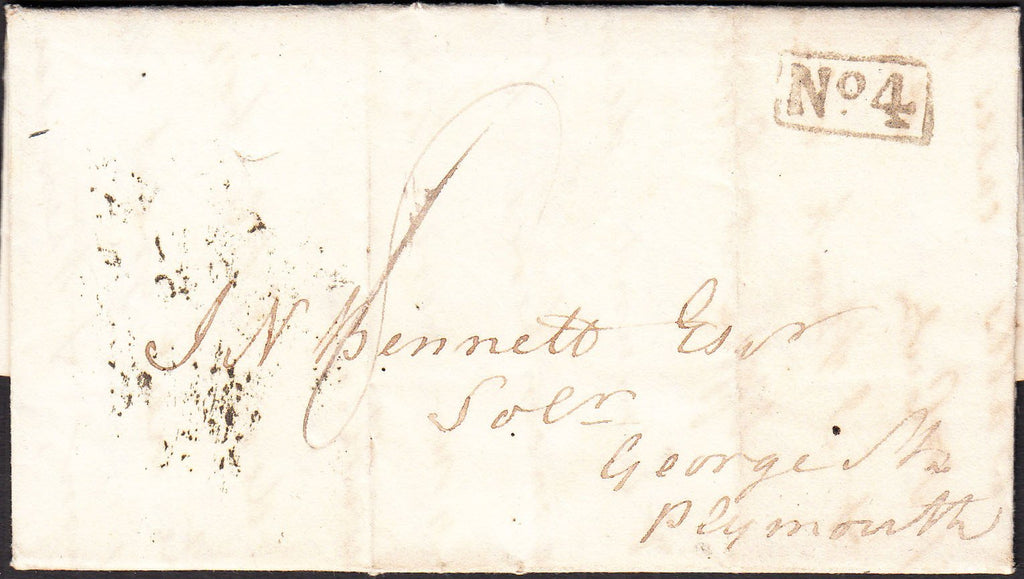 No. 4
J N Bennett Esqr
Solr
George St
Plymouth